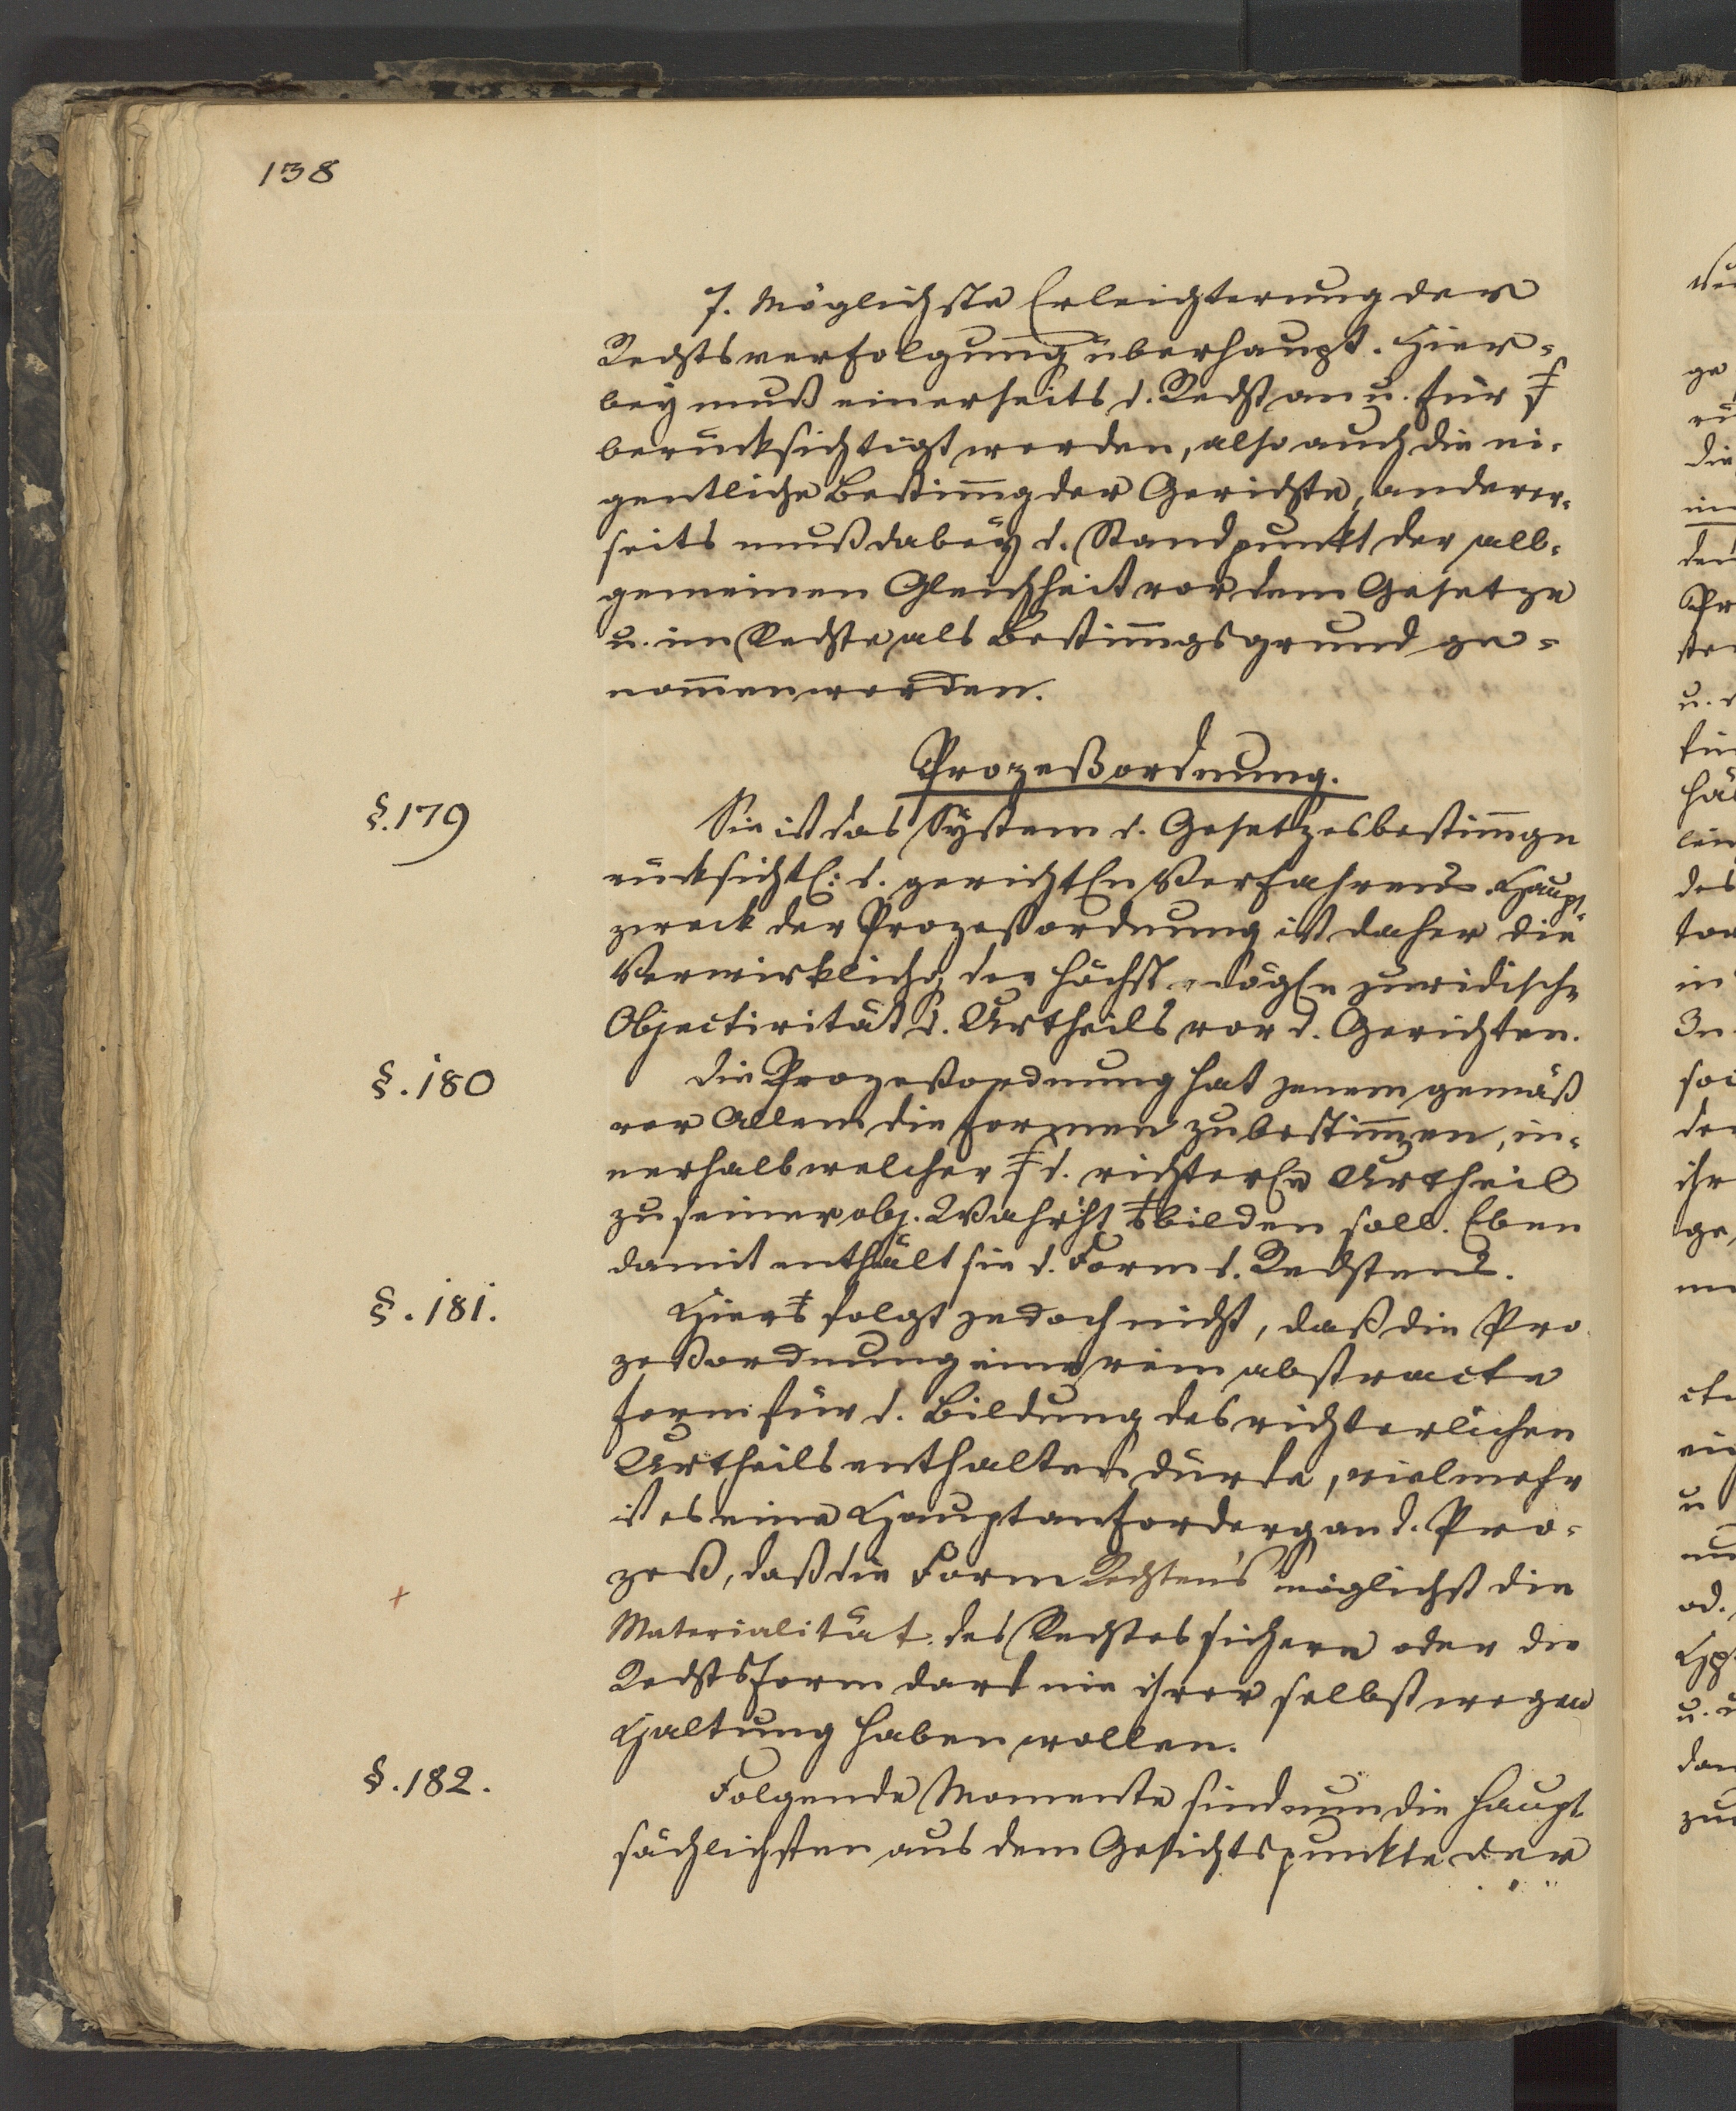 138
7. Möglichste Erleichterung der
Rechtsverfolgung überhaupt. Hier=
bey muß einerseits d. Recht an u. für
berücksichtigt werden, also auch die ei=
gentliche Bestim̅g der Gerichte, anderer=
seits muß dabey d. Standpunkt der all=
gemeinen Gleichheit vor dem Gesetze
u. im Rechte als Bestim̅gsgrund ge=
nom̅en werden.
Prozeßordnung.
§. 179
Sie ist das System d. Gesetzesbestim̅gn
rücksichtl: d. gerichtln Verfahrens. Haupt=
zweck der Prozeßordnung ist daher die
Verwirklichg der höchst mögln juridische
Objectivität d. Urtheils vor d. Gerichten.
§. 180
Die Prozeßordnung hat jenem gemäß
vor Allem die Formen zu bestim̅en, in=
nerhalb welcher d. richterln Urtheil
zu seiner obj. Wahrht bilden soll. Eben
damit enthält sie d. Form d. Rechtens.
§. 181.
Hier folgt jedoch nicht, daß die Pro
zeßordnung eine rein abstracte
Form für d. Bildung des richterlichen
Urtheils enthalten dürfe, vielmehr
ist es eine Hauptanforderg an d. Pro=
zeß, daß die Form Rechtens möglichst die
Materialität des Rechtes sichere oder die
Rechtsform darf nie ihrer selbst wegen
Haltung haben wollen.
§. 182.
Folgende Momente sind nun die haupt
sächlichsten aus dem Gesichtspunkte der